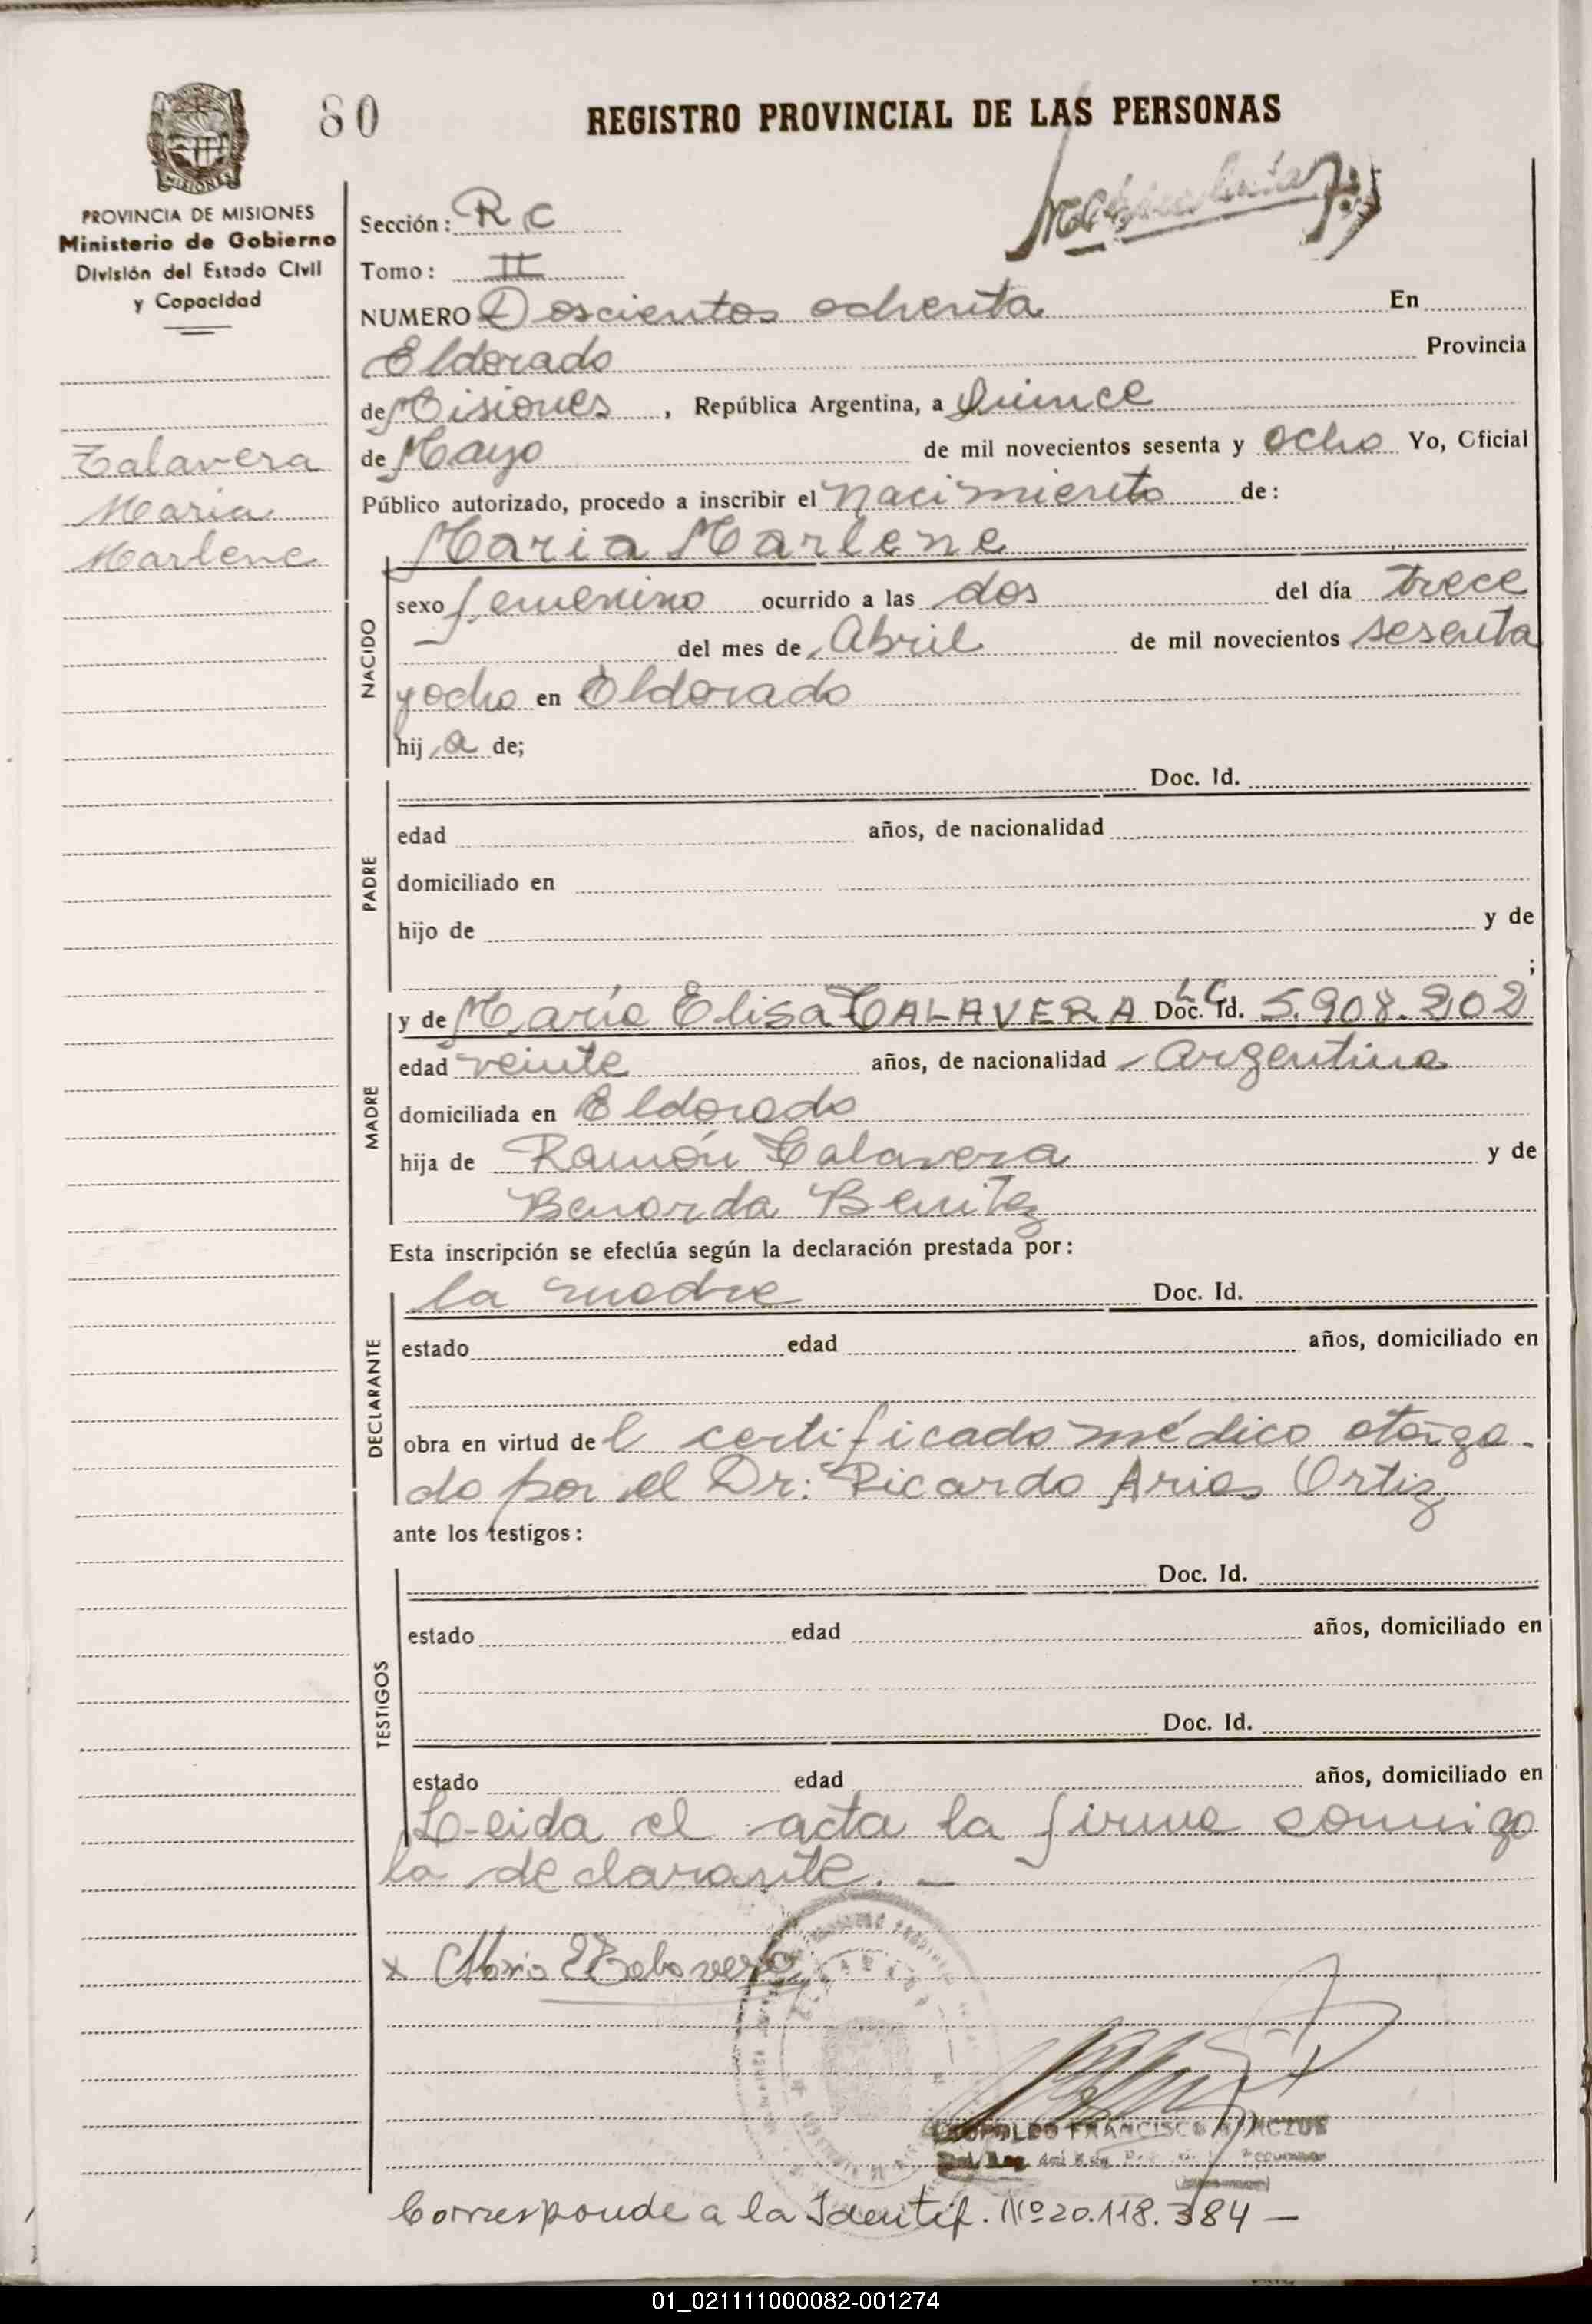 80
REGISTRO PROVINCIAL DE LAS PERSONAS
MISIONES
PROVINCIA DE MISIONES
Ministerio de Gobierno
División del Estado Civil
y Capacidad
Talavera
Maria
Marlene
Sección: R C
Tomo: II
NUMERO Doscientos ochenta En
Eldorado Provincia
de Misiones, República Argentina, a Quince
de Mayo de mil novecientos sesenta y ocho Yo, Oficial
Público autorizado, procedo a inscribir el nacimiento de:
Maria Marlene
NACIDO
sexo femenino ocurrido a las dos del día trece
del mes de Abril de mil novecientos sesenta
y ocho en Eldorado
hij a de;
PADRE
Doc. Id.
edad años, de nacionalidad
domiciliado en
hijo de y de
;
MADRE
y de María Elisa TALAVERA Doc. Id. L C 5.908.202
edad veinte años, de nacionalidad Argentina
domiciliada en Eldorado
hija de Ramón Talavera y de
Benarda Benitez
Esta inscripción se efectúa según la declaración prestada por:
DECLARANTE
la madre Doc. Id.
estado edad años, domiciliado en
obra en virtud del certificado médico otorga-
do por el Dr: Ricardo Arias Ortiz
ante los testigos:
TESTIGOS
Doc. Id.
estado edad años, domiciliado en
Doc. Id.
estado edad años, domiciliado en
Leida el acta la firma conmigo
la declarante. —
x Maria E Talavera
LEOPOLDO FRANCISCO
Corresponde a la Identif. Nº 20.118.384 —
01_021111000082-001274